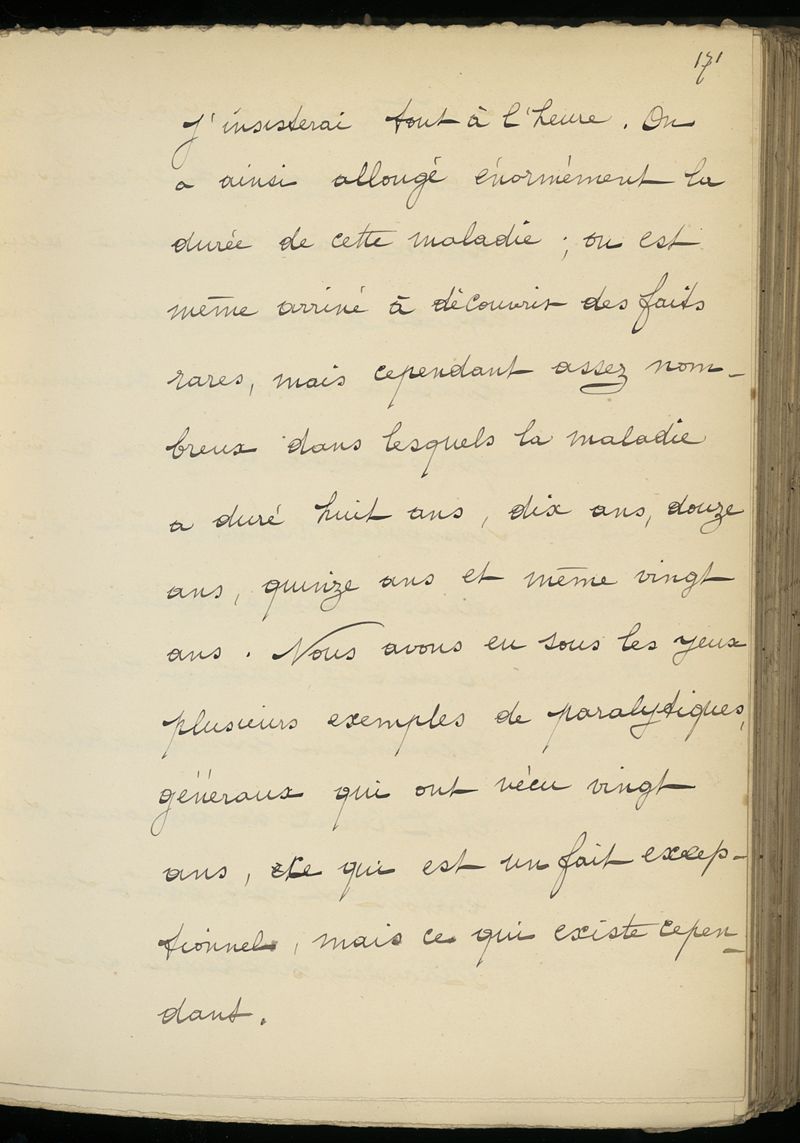 171
J'insisterai tout à l'heure. On
a ainsi allongé énormément la
durée de cette maladie ; on est
même arrivé à découvrir des faits
rares, mais cependant assez nom-
breux dans lesquels la maladie
a duré huit ans, dix ans, douze
ans, quinze ans et même vingt
ans. Nous avons eu sous les yeux
plusieurs exemples de paralytiques,
généraux qui ont vécu vingt
ans, ce qui est un fait excep-
tionnel, mais ce qui existe cepen-
dant.